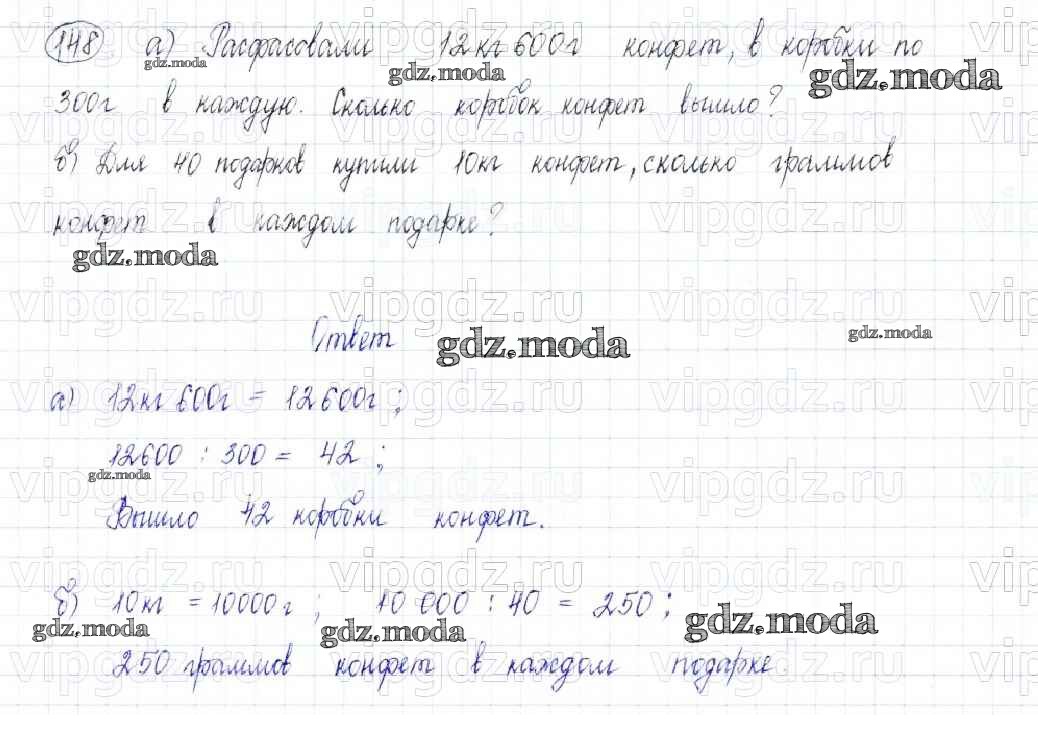 148 а) Расфасовали 12кг 600г конфет, в коробки по
300г в каждую. Сколько коробок конфет вышло?
б) Для 40 подарков купили 10кг конфет, сколько граммов
конфет в каждом подарке?
Ответ
а) 12кг 600г = 12600г;
12600 : 300 = 42;
Вышло 42 коробки конфет.
б) 10кг = 10000г; 10 000 : 40 = 250;
250 граммов конфет в каждом подарке.
gdz.moda
gdz.moda
gdz.moda
gdz.moda
gdz.moda
gdz.moda
gdz.moda
gdz.moda
gdz.moda
gdz.moda
vipgdz.ru